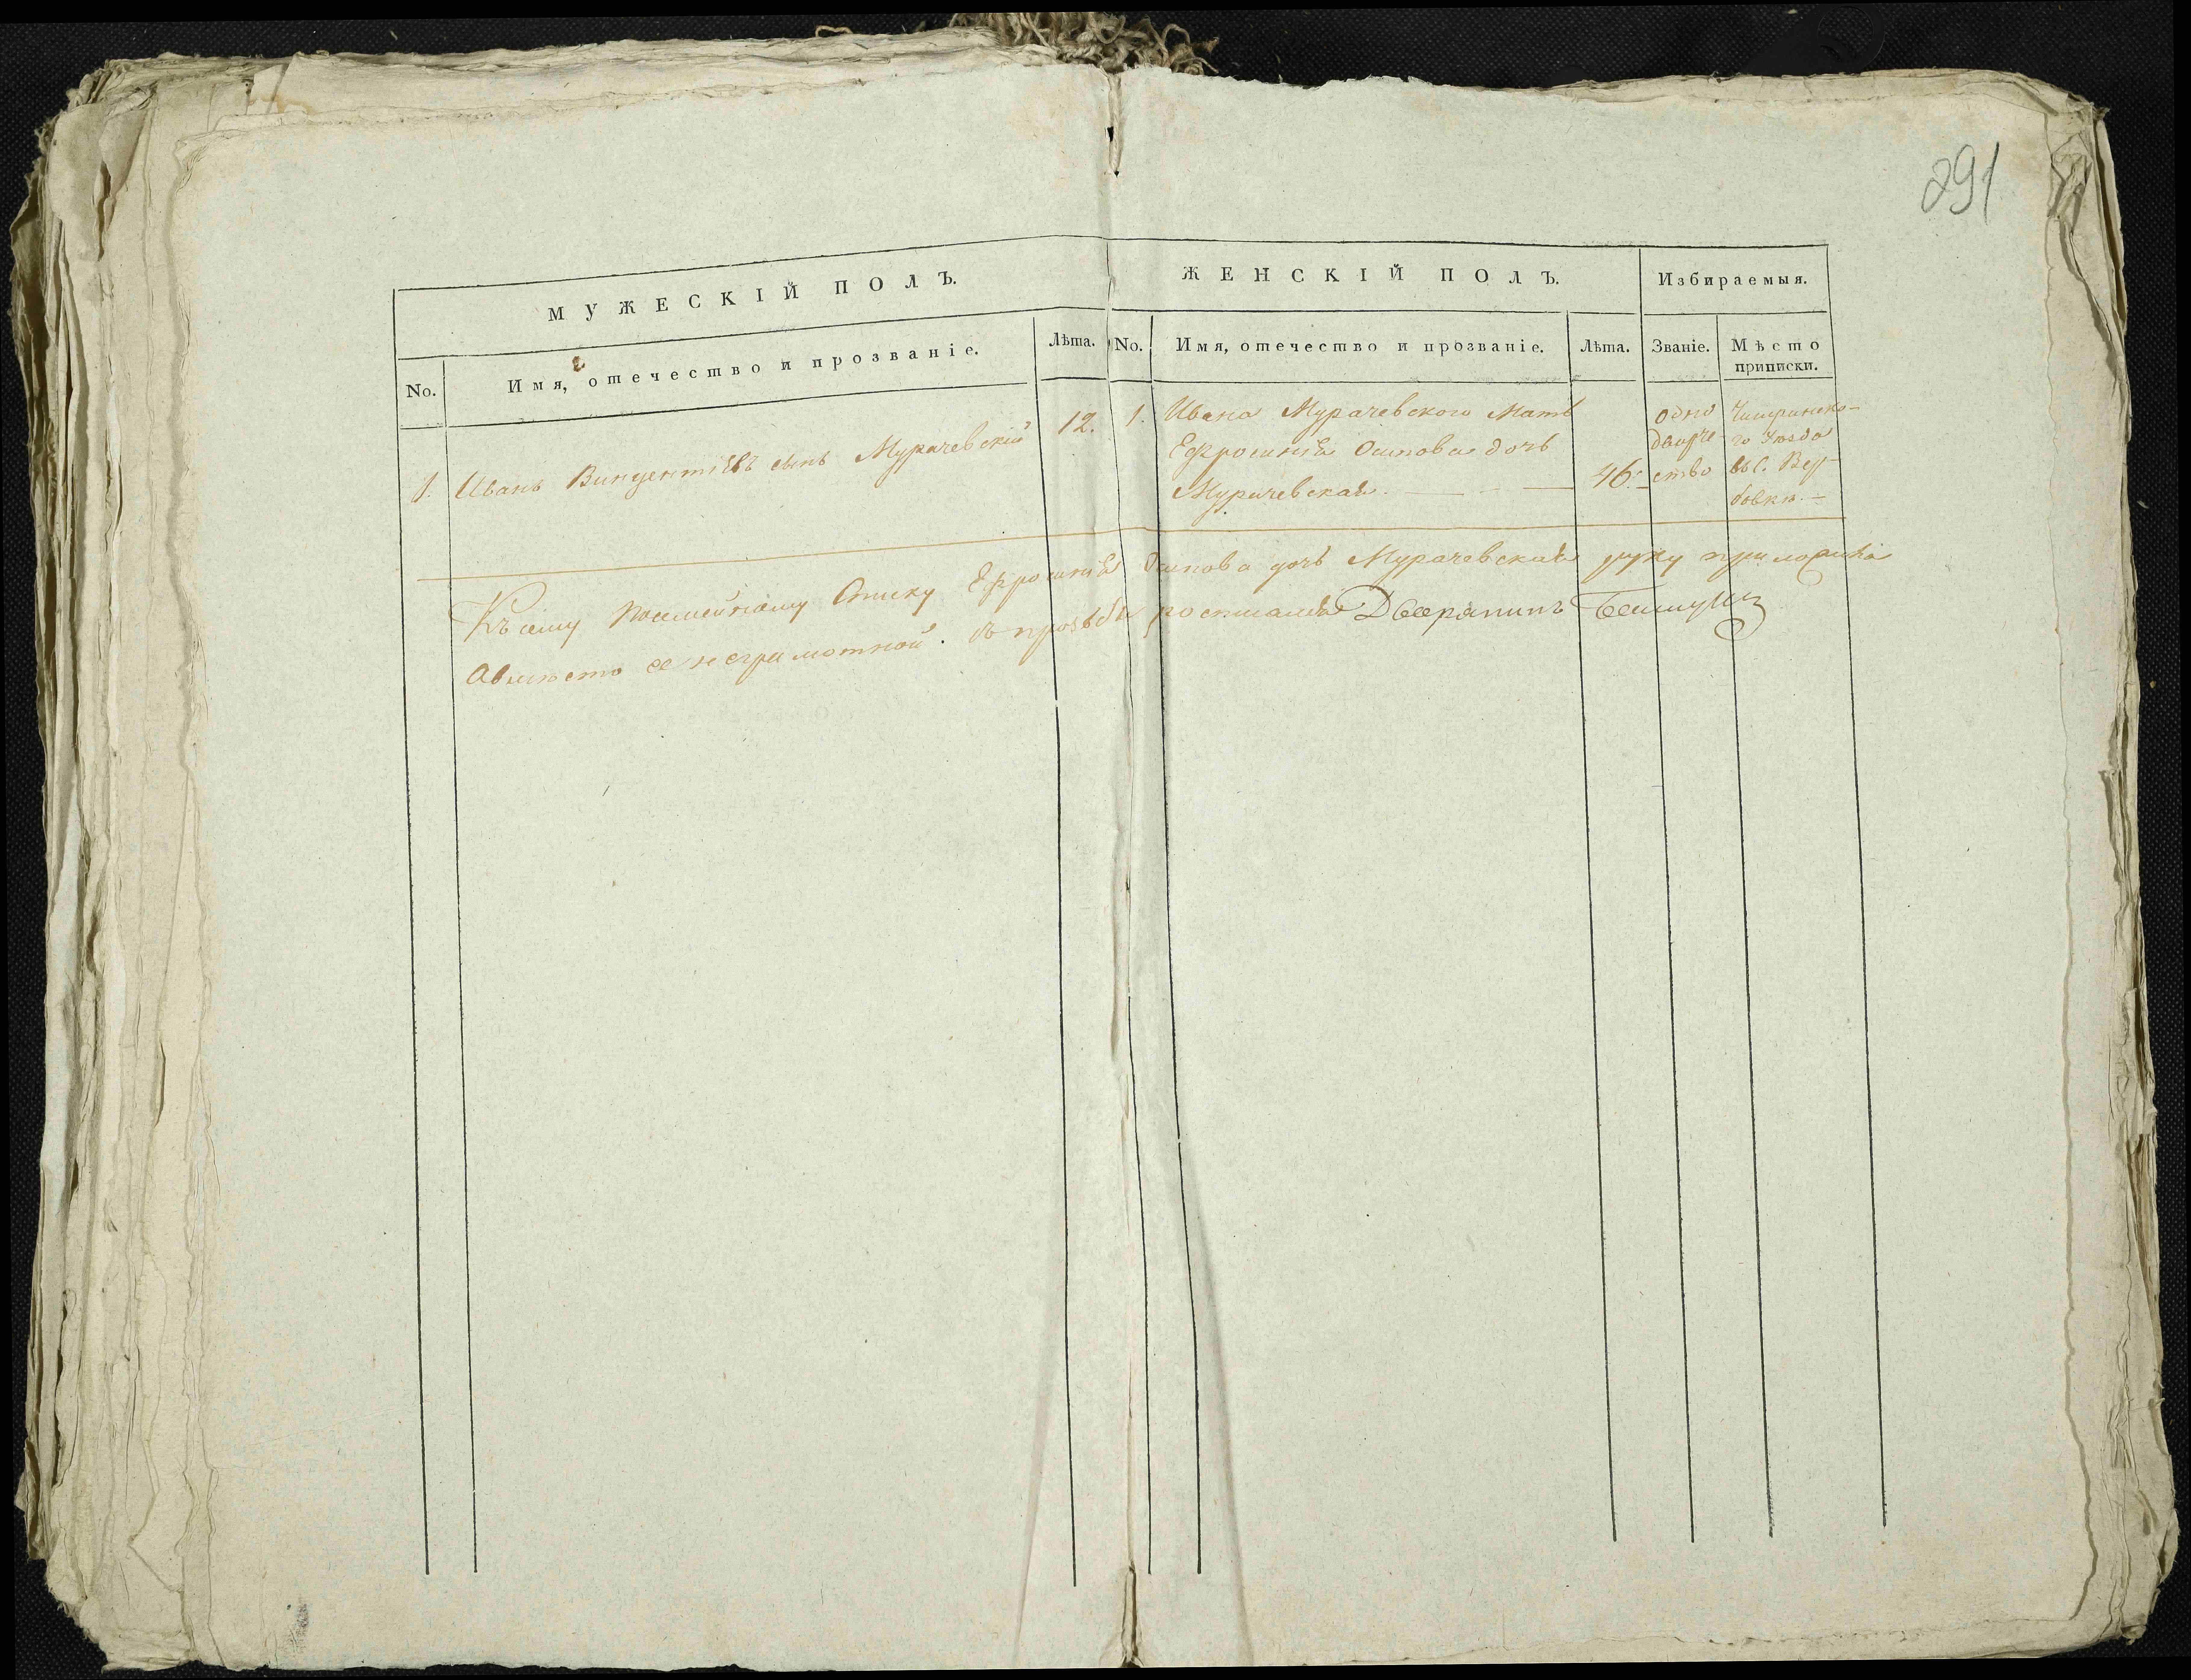 291
МУЖЕСКІЙ ПОЛЪ.
ЖЕНСКІЙ ПОЛЪ.
Избираемыя.
No.
Имя, отечество и прозваніе.
Лѣта.
No.
Имя, отечество и прозваніе.
Лѣта.
Званіе.
Мѣсто
приписки.
1. Иванъ Винцентіевъ сынъ Мурачевскій 12.
1. Ивана Мурачевского Мать
Ефросинія Осипова дочь
Мурачевская. 46.
одно
дворче
ство
Чигринско-
го Уѣзда
въ с. Вер-
бовки.
Къ сему Посемейному Списку Ефросинія Осипова дочь Мурачевская руку приложила
а вмѣсто ее неграмотной. по прозьбѣ росписался Дворянинъ